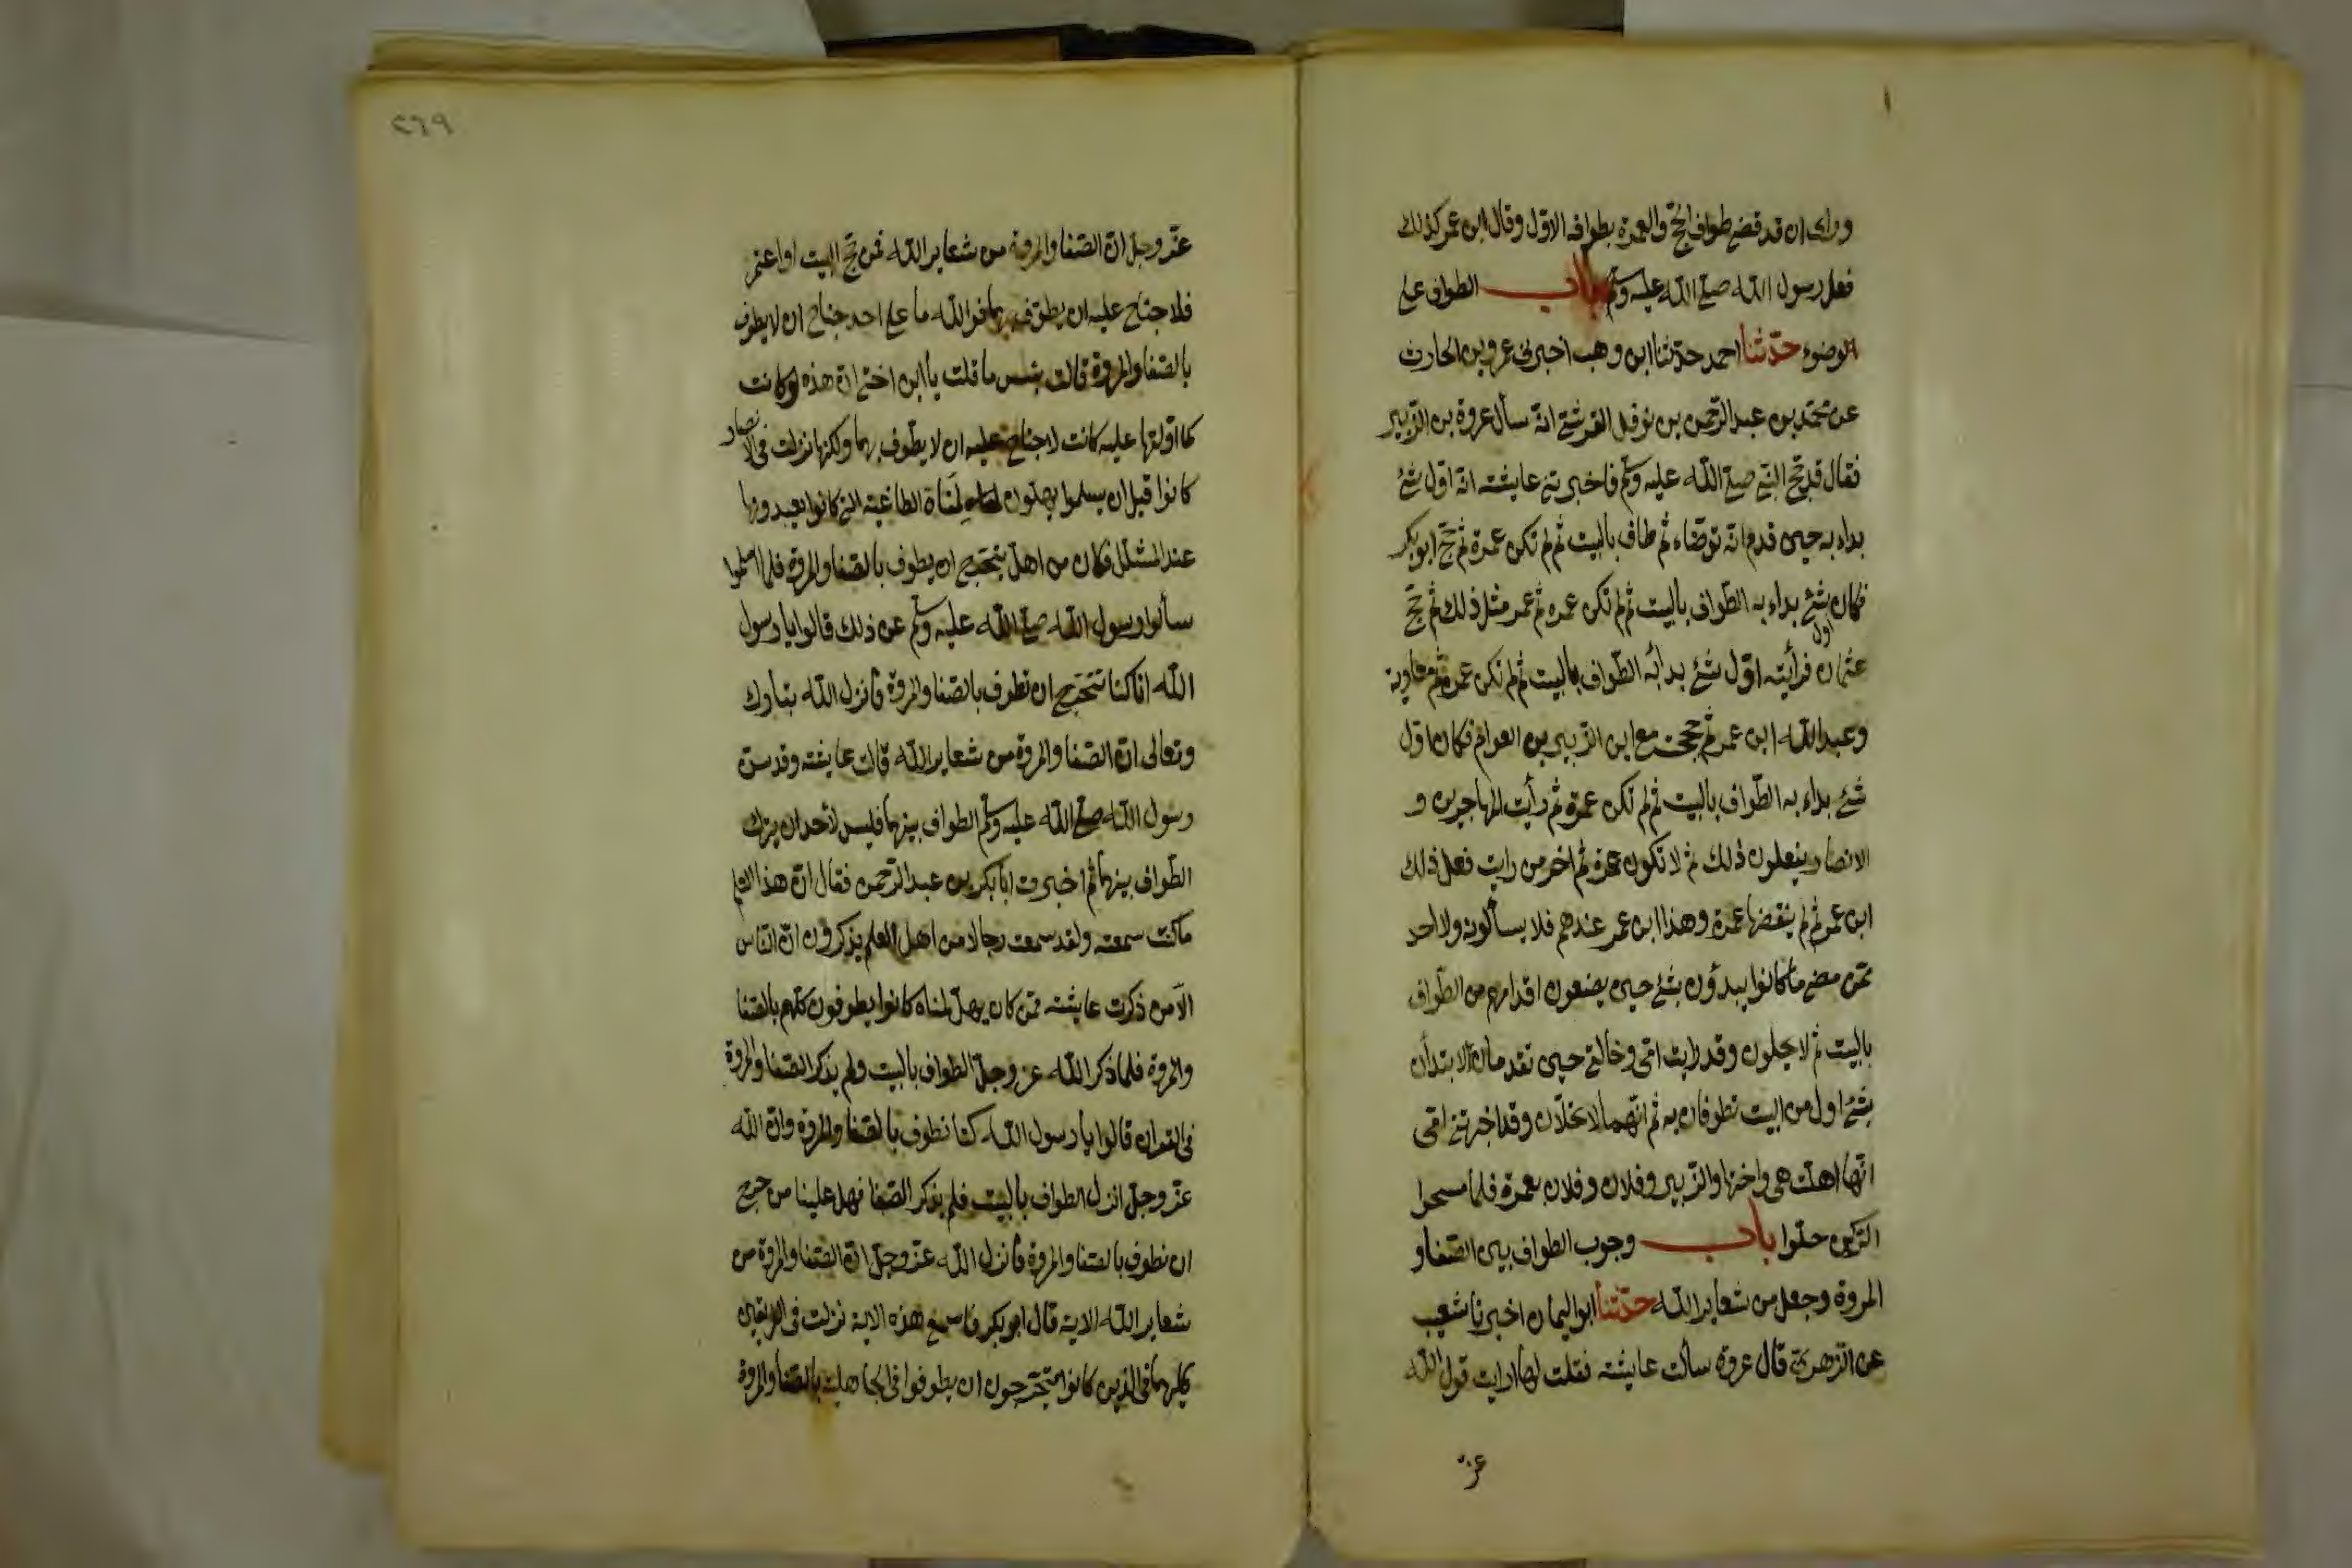 وراى ان قد قضى طواف الحج والعمرة بطوافه الاول وقال ابن عمر كذلك
فعل رسول الله صلى الله عليه وسلم باب الطواف على
الوضوء حدثنا احمد حدثنا ابن وهب اخبرنى عمرو بن الحارث
عن محمد بن عبد الرحمن بن نوفل القرشى انه سأل عروة بن الزبير
فقال قد حج النبى صلى الله عليه وسلم فاخبرتنى عايشة انه اول شئ
بداء به حين قدم انه توضاء ثم طاف بالبيت ثم لم تكن عمرة ثم حج ابو بكر
فكان اول شئ بداء به الطواف بالبيت ثم لم تكن عمره ثم عمر مثل ذلك ثم حج
عثمان فرأيته اول شئ بدأ به الطواف بالبيت ثم لم تكن عمرة ثم معاوية
وعبد الله ابن عمر ثم حججت مع ابن الزبير بن العوام فكان اول
شئ بداء به الطواف بالبيت ثم لم تكن عمرة ثم رأيت المهاجرين و
الانصار يفعلون ذلك ثم لا تكون عمرة ثم اخر من رايت فعل ذلك
ابن عمر ثم لم ينقضها عمرة وهذا ابن عمر عندهم فلا يسألونه ولا احد
ممن مضى ما كانوا يبدؤن بشئ حين يضعون اقدامهم من الطواف
بالبيت ثم لا يحلون وقد رايت امى وخالتى حين تقدمان لا تبتدأن
بشئ اول من البيت تطوفان به ثم انهما لا تحلان وقد اخبرتنى امى
انها اهلت هى واختها والزبير وفلان وفلان بعمرة فلما مسحوا
الركن حلوا باب وجوب الطواف بين الصفا و
المروة وجعل من شعاير الله حدثنا ابو اليمان اخبرنا شعيب
عن الزهرى قال عروة سألت عايشة فقلت لها ارايت قول الله
عز
٢٦٩
عز وجل ان الصفا والمروة من شعاير الله فمن حج البيت او اعتمر
فلا جناح عليه ان يطوف بهما فوالله ما على احد جناح ان لا يطوف
بالصفا والمروة قالت بئس ما قلت يا ابن اختى ان هذه لو كانت
كما اولتها عليه كانت لا جناح عليه ان لا يطوف بهما ولكنها نزلت فى الانصار
كانوا قبل ان يسلموا يهلون لمناة الطاغية التى كانوا يعبدونها
عند المشلل فكان من اهل يتحرج ان يطوف بالصفا والمروة فلما اسلموا
سألوا رسول الله صلى الله عليه وسلم عن ذلك قالوا يا رسول
الله انا كنا نتحرج ان نطوف بالصفا والمروة فأنزل الله تبارك
وتعالى ان الصفا والمروة من شعاير الله قالت عايشة وقد سن
رسول الله صلى الله عليه وسلم الطواف بينهما فليس لأحد ان يترك
الطواف بينهما ثم اخبرت ابا بكر بن عبد الرحمن فقال ان هذا العلم
ما كنت سمعته ولقد سمعت رجالا من اهل العلم يذكرون ان الناس
الا من ذكرت عايشة ممن كان يهل لمناة كانوا يطوفون كلهم بالصفا
والمروة فلما ذكر الله عز وجل الطواف بالبيت ولم يذكر الصفا والمروة
فى القران قالوا يا رسول الله كنا نطوف بالصفا والمروة وان الله
عز وجل انزل الطواف بالبيت فلم يذكر الصفا فهل علينا من حرج
ان نطوف بالصفا والمروة فأنزل الله عز وجل ان الصفا والمروة من
شعاير الله الاية قال ابو بكر فاسمع هذه الاية نزلت فى الفريقين
كليهما فى الذين كانوا يتحرجون ان يطوفوا فى الجاهلية بالصفا والمروة